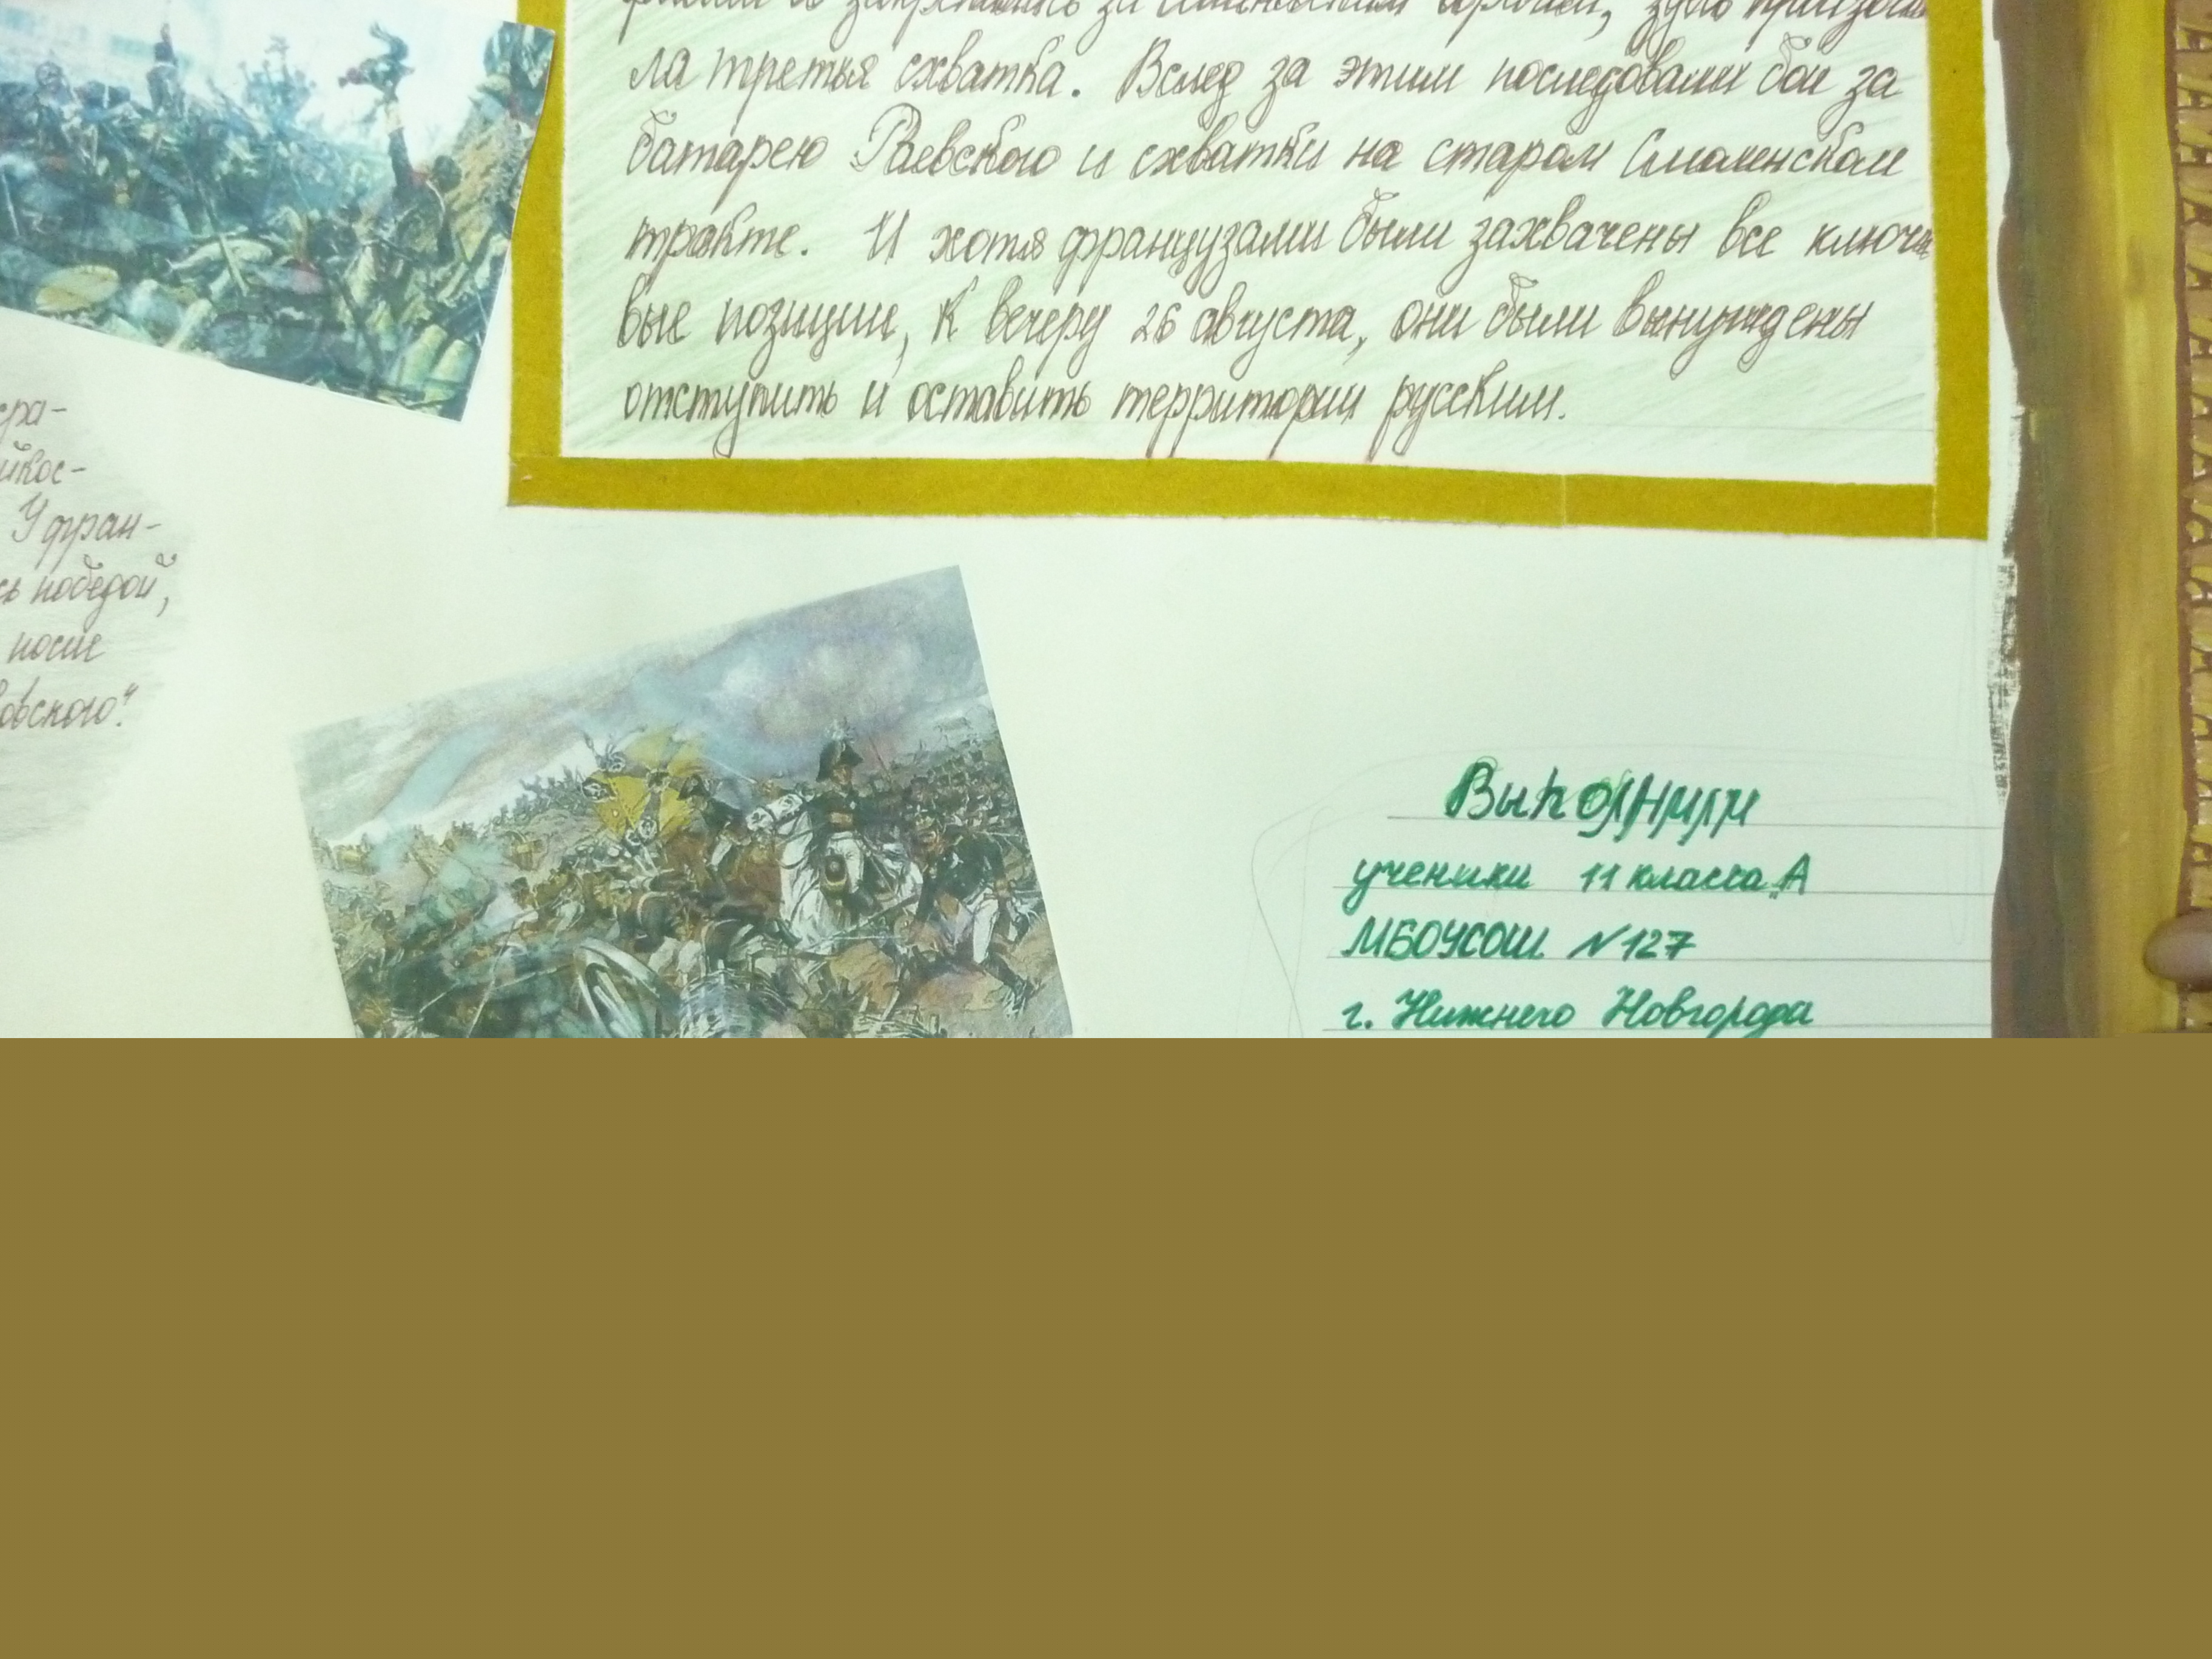 ла третья схватка. Вслед за этим последовали бои за
батарею Раевского и схватки на старом Смоленском
тракте. И хотя французами были захвачены все ключе
вые позиции, к вечеру 26 августа, они были вынуждены
отступить и оставить территории русским.
ера-
йкос-
У фран-
сь победой,
после
Выполнили
ученики 11 класса „А
МБОУСОШ №127
г. Нижнего Новгорода